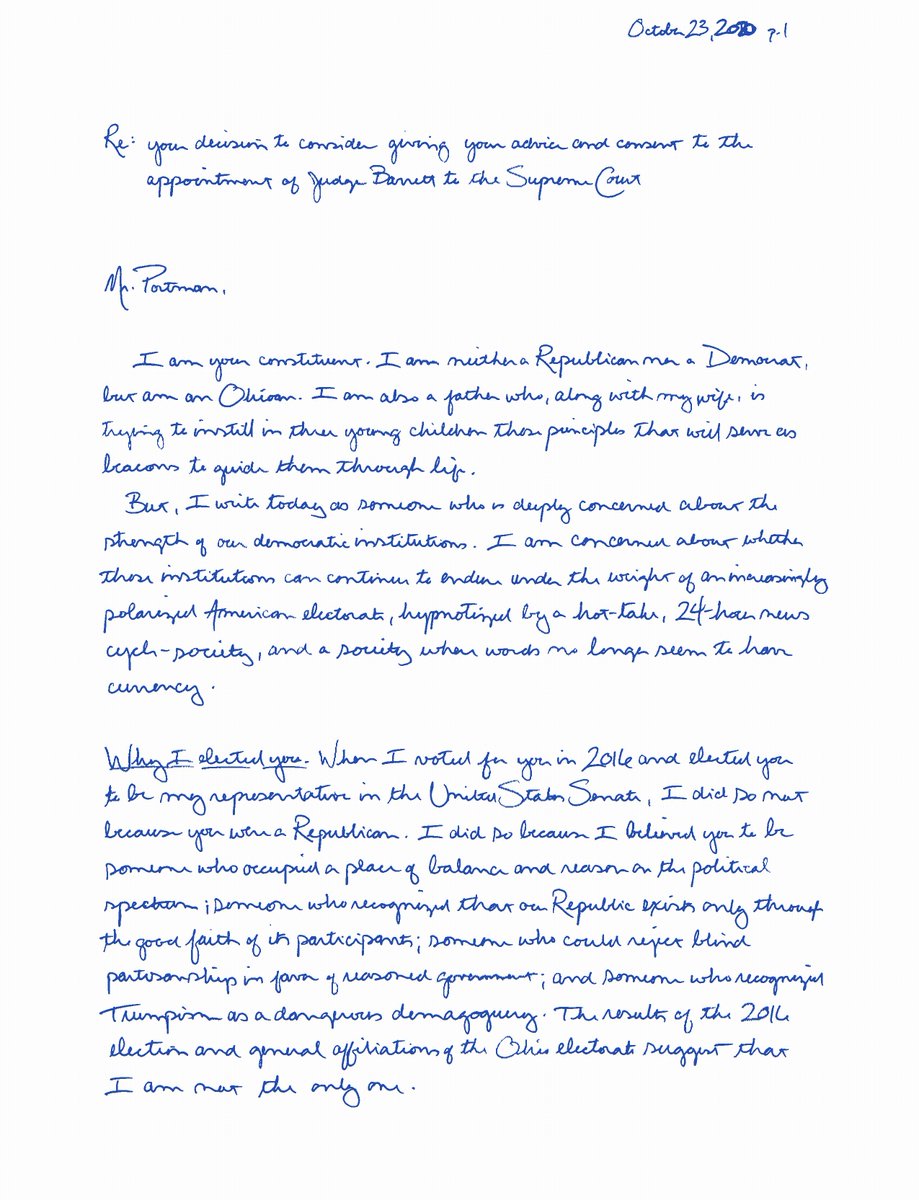 October 23, 2020 p.1
Re: your decision to consider giving your advice and consent to the
appointment of Judge Barrett to the Supreme Court
Mr. Portman,
I am your constituent. I am neither a Republican nor a Democrat,
but am an Ohioan. I am also a father who, along with my wife, is
trying to instill in three young children those principles that will serve as
beacons to guide them through life.
But, I write today as someone who is deeply concerned about the
strength of our democratic institutions. I am concerned about whether
those institutions can continue to endure under the weight of an increasingly
polarized American electorate, hypnotized by a hot-take, 24-hour news
cycle-society, and a society where words no longer seem to have
currency.
Why I elected you. When I voted for you in 2016 and elected you
to be my representative in the United States Senate, I did so not
because you were a Republican. I did so because I believed you to be
someone who occupied a place of balance and reason on the political
spectrum; someone who recognized that our Republic exists only through
the good faith of its participants; someone who could reject blind
partisanship in favor of reasoned government; and someone who recognized
Trumpism as a dangerous demagoguery. The results of the 2016
election and general affiliations of the Ohio electorate suggest that
I am not the only one.